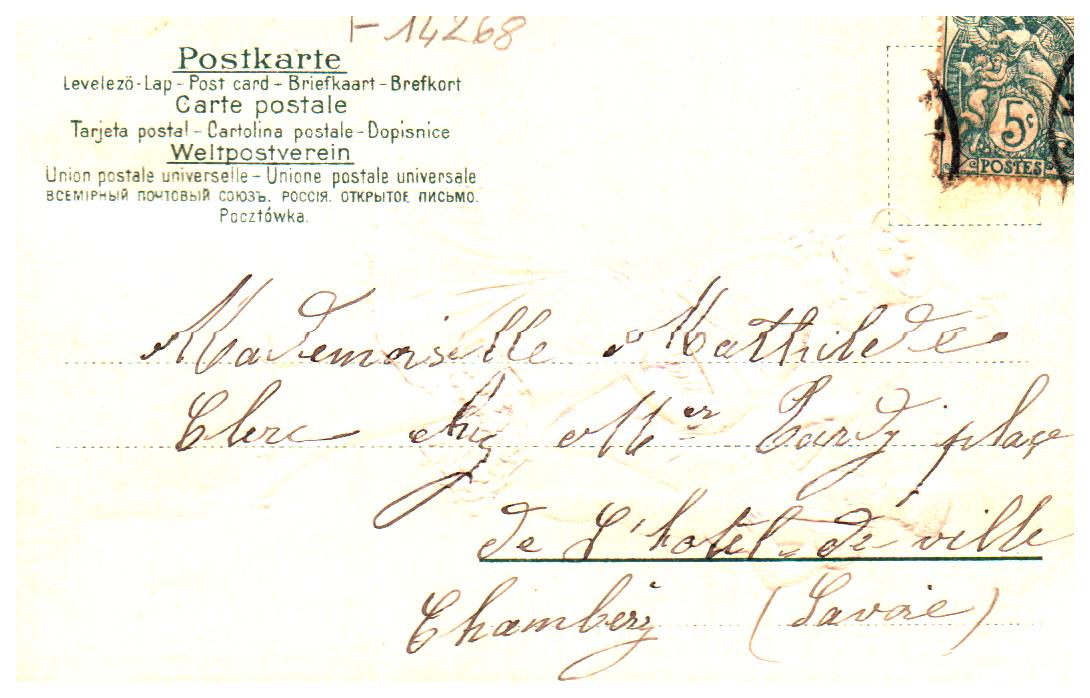 F-14268
Postkarte
Levelező-Lap - Post card - Briefkaart - Brefkort
Carte postale
Tarjeta postal - Cartolina postale - Dopisnice
Weltpostverein
Union postale universelle - Unione postale universale
ВСЕМІРНЫЙ ПОЧТОВЫЙ СОЮЗЪ. РОССІЯ. ОТКРЫТОЕ ПИСЬМО.
Pocztówka.
5c
POSTES
Mademoiselle Mathilde
Clerc chez Mer Pardy place
de L'hotel-de-ville
Chambéry (Savoie)